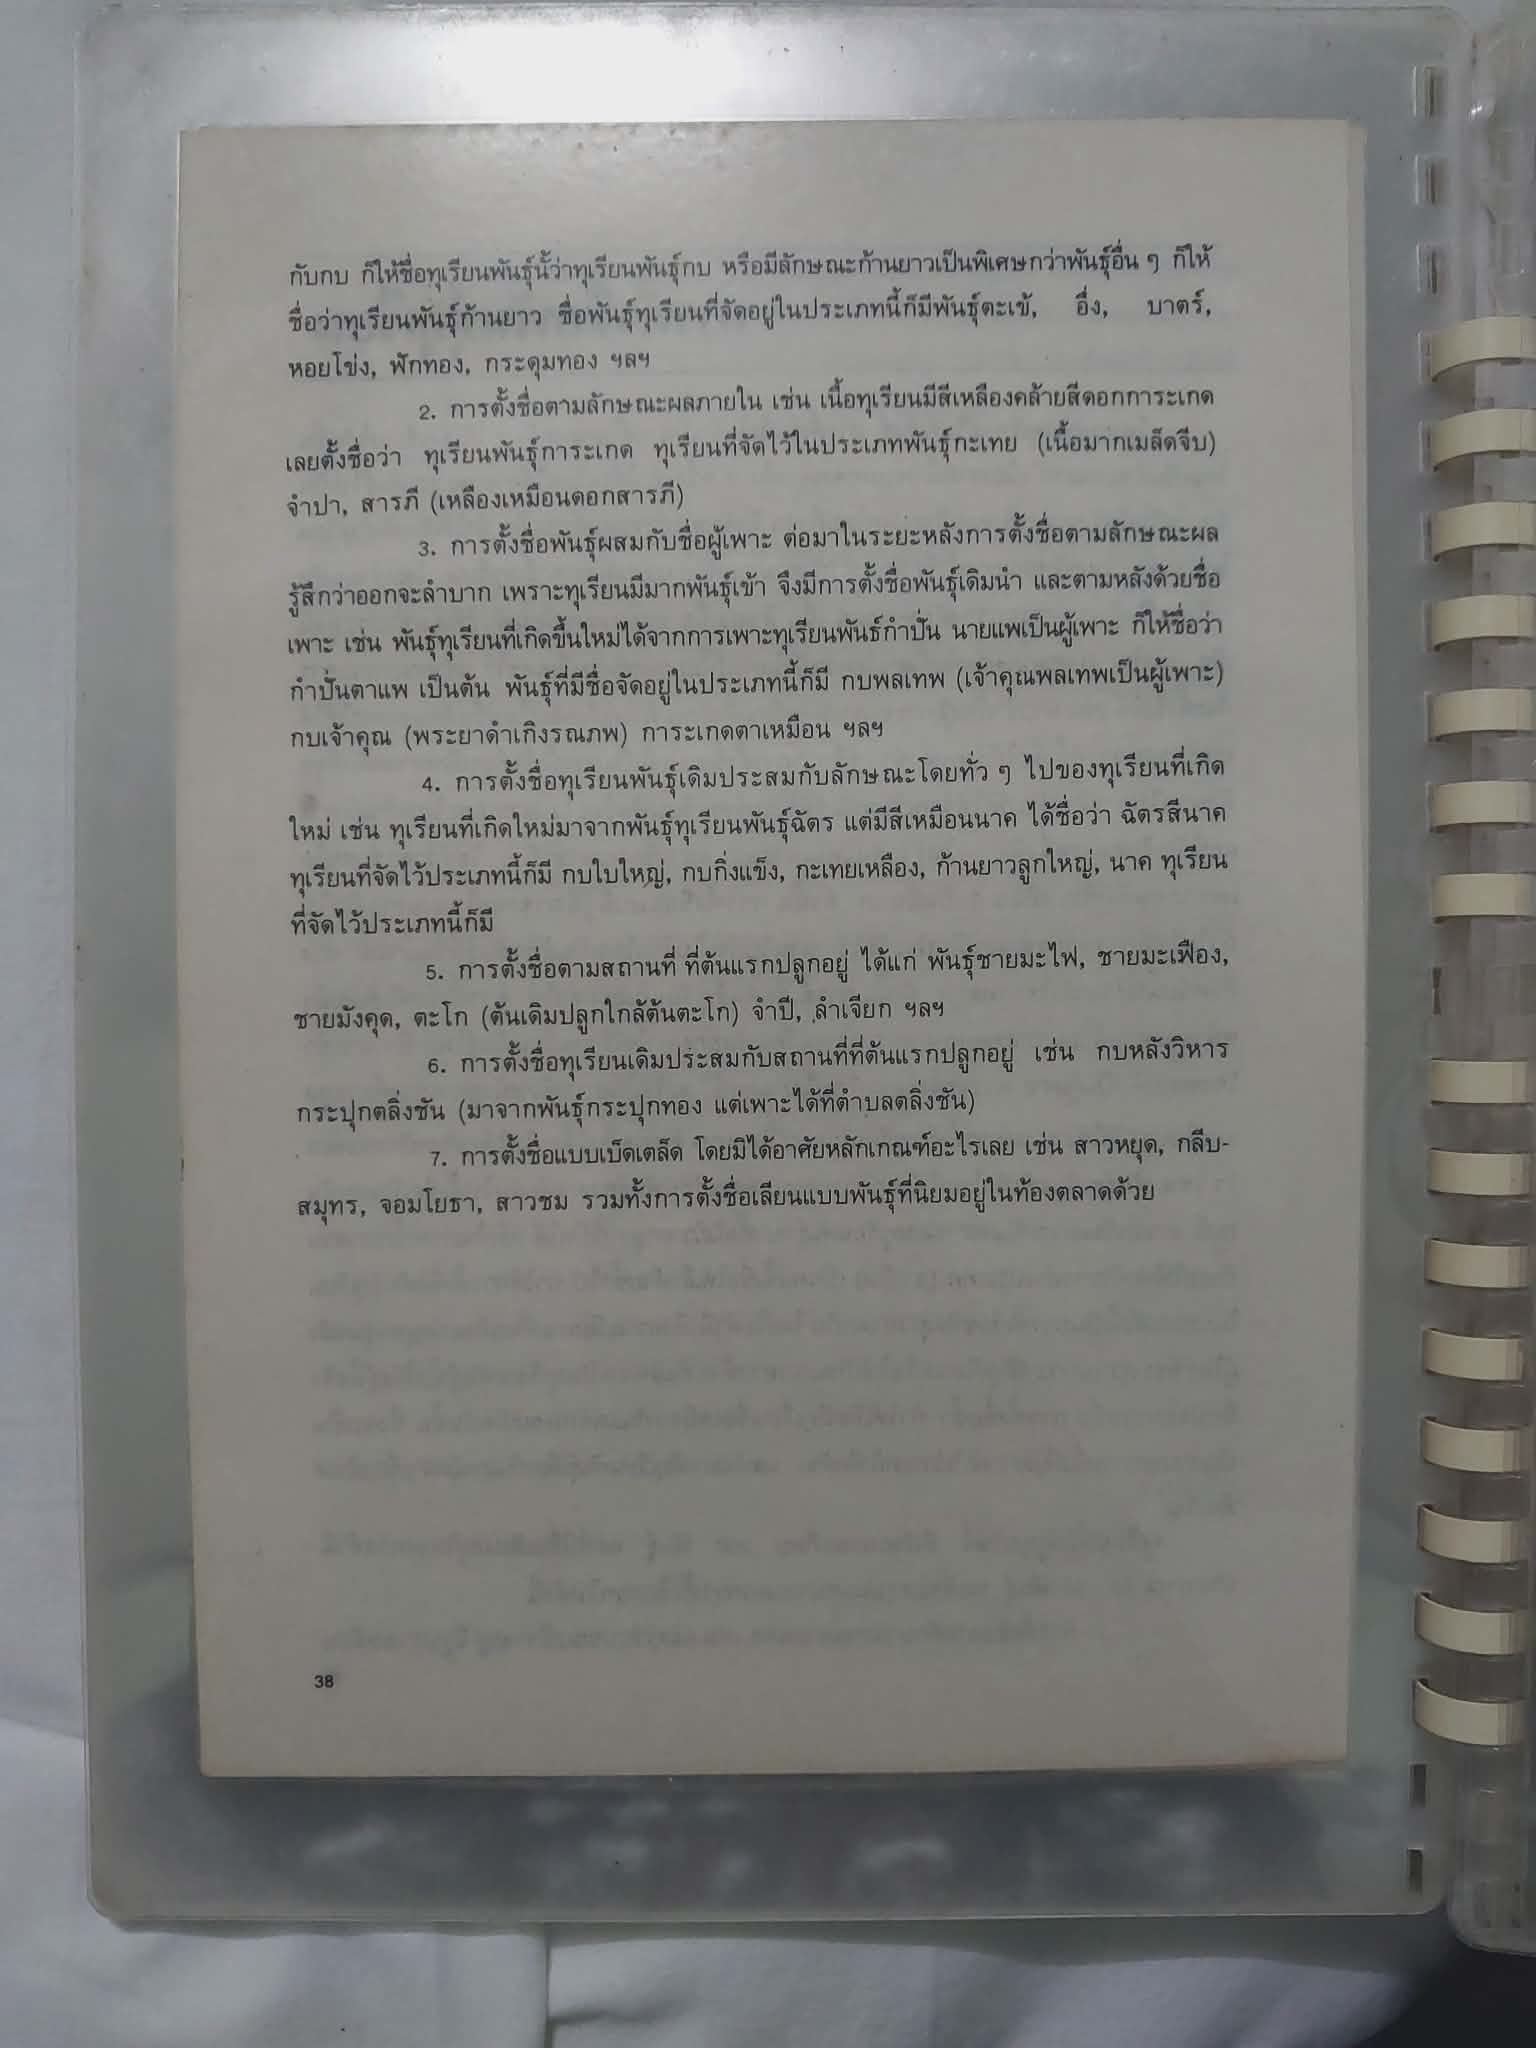 กับกบ ก็ให้ชื่อทุเรียนพันธุ์นั้ว่าทุเรียนพันธุ์กบ หรือมีลักษณะก้านยาวเป็นพิเศษกว่าพันธุ์อื่น ๆ ก็ให้
ชื่อว่าทุเรียนพันธุ์ก้านยาว ชื่อพันธุ์ทุเรียนที่จัดอยู่ในประเภทนี้ก็มีพันธุ์ตะเข้, อึ่ง, บาตร์,
หอยโข่ง, ฟักทอง, กระดุมทอง ฯลฯ
2. การตั้งชื่อตามลักษณะผลภายใน เช่น เนื้อทุเรียนมีสีเหลืองคล้ายสีดอกการะเกด
เลยตั้งชื่อว่า ทุเรียนพันธุ์การะเกด ทุเรียนที่จัดไว้ในประเภทพันธุ์กะเทย (เนื้อมากเมล็ดจีบ)
จำปา, สารภี (เหลืองเหมือนดอกสารภี)
3. การตั้งชื่อพันธุ์ผสมกับชื่อผู้เพาะ ต่อมาในระยะหลังการตั้งชื่อตามลักษณะผล
รู้สึกว่าออกจะลำบาก เพราะทุเรียนมีมากพันธุ์เข้า จึงมีการตั้งชื่อพันธุ์เดิมนำ และตามหลังด้วยชื่อ
เพาะ เช่น พันธุ์ทุเรียนที่เกิดขึ้นใหม่ได้จากการเพาะทุเรียนพันธ์กำปั่น นายแพเป็นผู้เพาะ ก็ให้ชื่อว่า
กำปั่นตาแพ เป็นต้น พันธุ์ที่มีชื่อจัดอยู่ในประเภทนี้ก็มี กบพลเทพ (เจ้าคุณพลเทพเป็นผู้เพาะ)
กบเจ้าคุณ (พระยาดำเกิงรณภพ) การะเกดตาเหมือน ฯลฯ
4. การตั้งชื่อทุเรียนพันธุ์เดิมประสมกับลักษณะโดยทั่ว ๆ ไปของทุเรียนที่เกิด
ใหม่ เช่น ทุเรียนที่เกิดใหม่มาจากพันธุ์ทุเรียนพันธุ์ฉัตร แต่มีสีเหมือนนาค ได้ชื่อว่า ฉัตรสีนาค
ทุเรียนที่จัดไว้ประเภทนี้ก็มี กบใบใหญ่, กบกิ่งแข็ง, กะเทยเหลือง, ก้านยาวลูกใหญ่, นาค ทุเรียน
ที่จัดไว้ประเภทนี้ก็มี
5. การตั้งชื่อตามสถานที่ ที่ต้นแรกปลูกอยู่ ได้แก่ พันธุ์ชายมะไฟ, ชายมะเฟือง,
ชายมังคุด, ตะโก (ต้นเดิมปลูกใกล้ต้นตะโก) จำปี, ลำเจียก ฯลฯ
6. การตั้งชื่อทุเรียนเดิมประสมกับสถานที่ที่ต้นแรกปลูกอยู่ เช่น กบหลังวิหาร
กระปุกตลิ่งชัน (มาจากพันธุ์กระปุกทอง แต่เพาะได้ที่ตำบลตลิ่งชัน)
7. การตั้งชื่อแบบเบ็ดเตล็ด โดยมิได้อาศัยหลักเกณฑ์อะไรเลย เช่น สาวหยุด, กลีบ-
สมุทร, จอมโยธา, สาวชม รวมทั้งการตั้งชื่อเลียนแบบพันธุ์ที่นิยมอยู่ในท้องตลาดด้วย
38